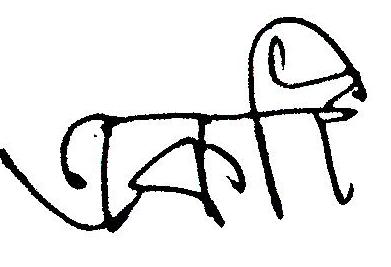 একটি